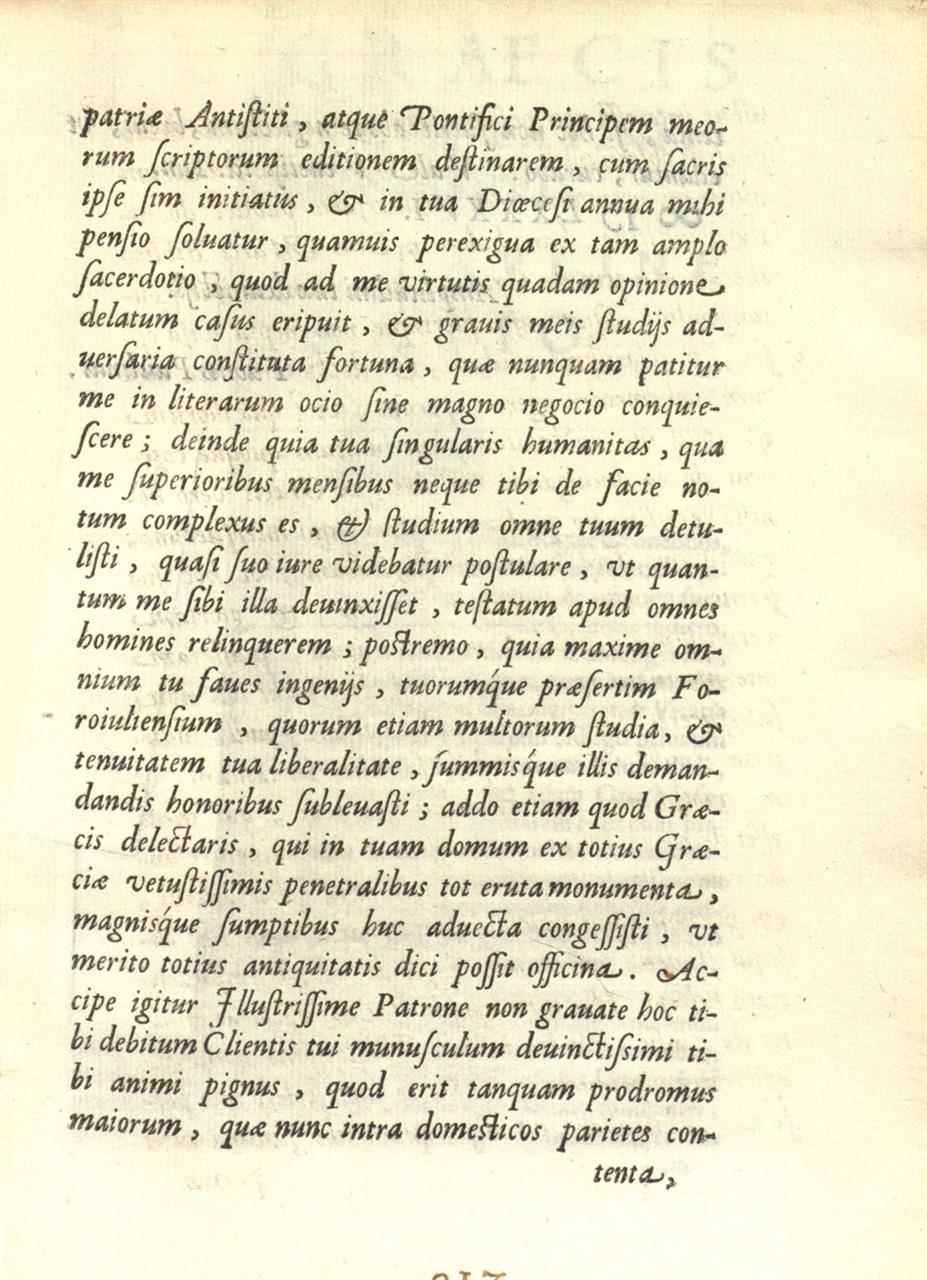 patriæ Antiſtiti, atque Pontifici Principem meo-
rum ſcriptorum editionem deſtinarem, cum ſacris
ipſe ſim initiatus, & in tua Diœceſi annua mihi
penſio ſoluatur, quamuis perexigua ex tam amplo
ſacerdotio, quod ad me virtutis quadam opinione
delatum caſus eripuit, & grauis meis ſtudijs ad-
uerſaria conſtituta fortuna, quæ nunquam patitur
me in literarum ocio ſine magno negocio conquie-
ſcere; deinde quia tua ſingularis humanitas, qua
me ſuperioribus menſibus neque tibi de facie no-
tum complexus es, & ſtudium omne tuum detu-
liſti, quaſi ſuo iure videbatur poſtulare, vt quan-
tum me ſibi illa deuinxiſſet, teſtatum apud omnes
homines relinquerem; poſtremo, quia maxime om-
nium tu faues ingenijs, tuorumq́ue præſertim Fo-
roiulienſium, quorum etiam multorum ſtudia, &
tenuitatem tua liberalitate, ſummisq́ue illis deman-
dandis honoribus ſubleuaſti; addo etiam quod Græ-
cis delectaris, qui in tuam domum ex totius Græ-
ciæ vetuſtiſſimis penetralibus tot eruta monumenta,
magnisq́ue ſumptibus huc aduecta congeſſiſti, vt
merito totius antiquitatis dici poſſit officina. Ac-
cipe igitur Illuſtriſſime Patrone non grauate hoc ti-
bi debitum Clientis tui munuſculum deuinctiſsimi ti-
bi animi pignus, quod erit tanquam prodromus
maiorum, quæ nunc intra domeſticos parietes con-
tenta,